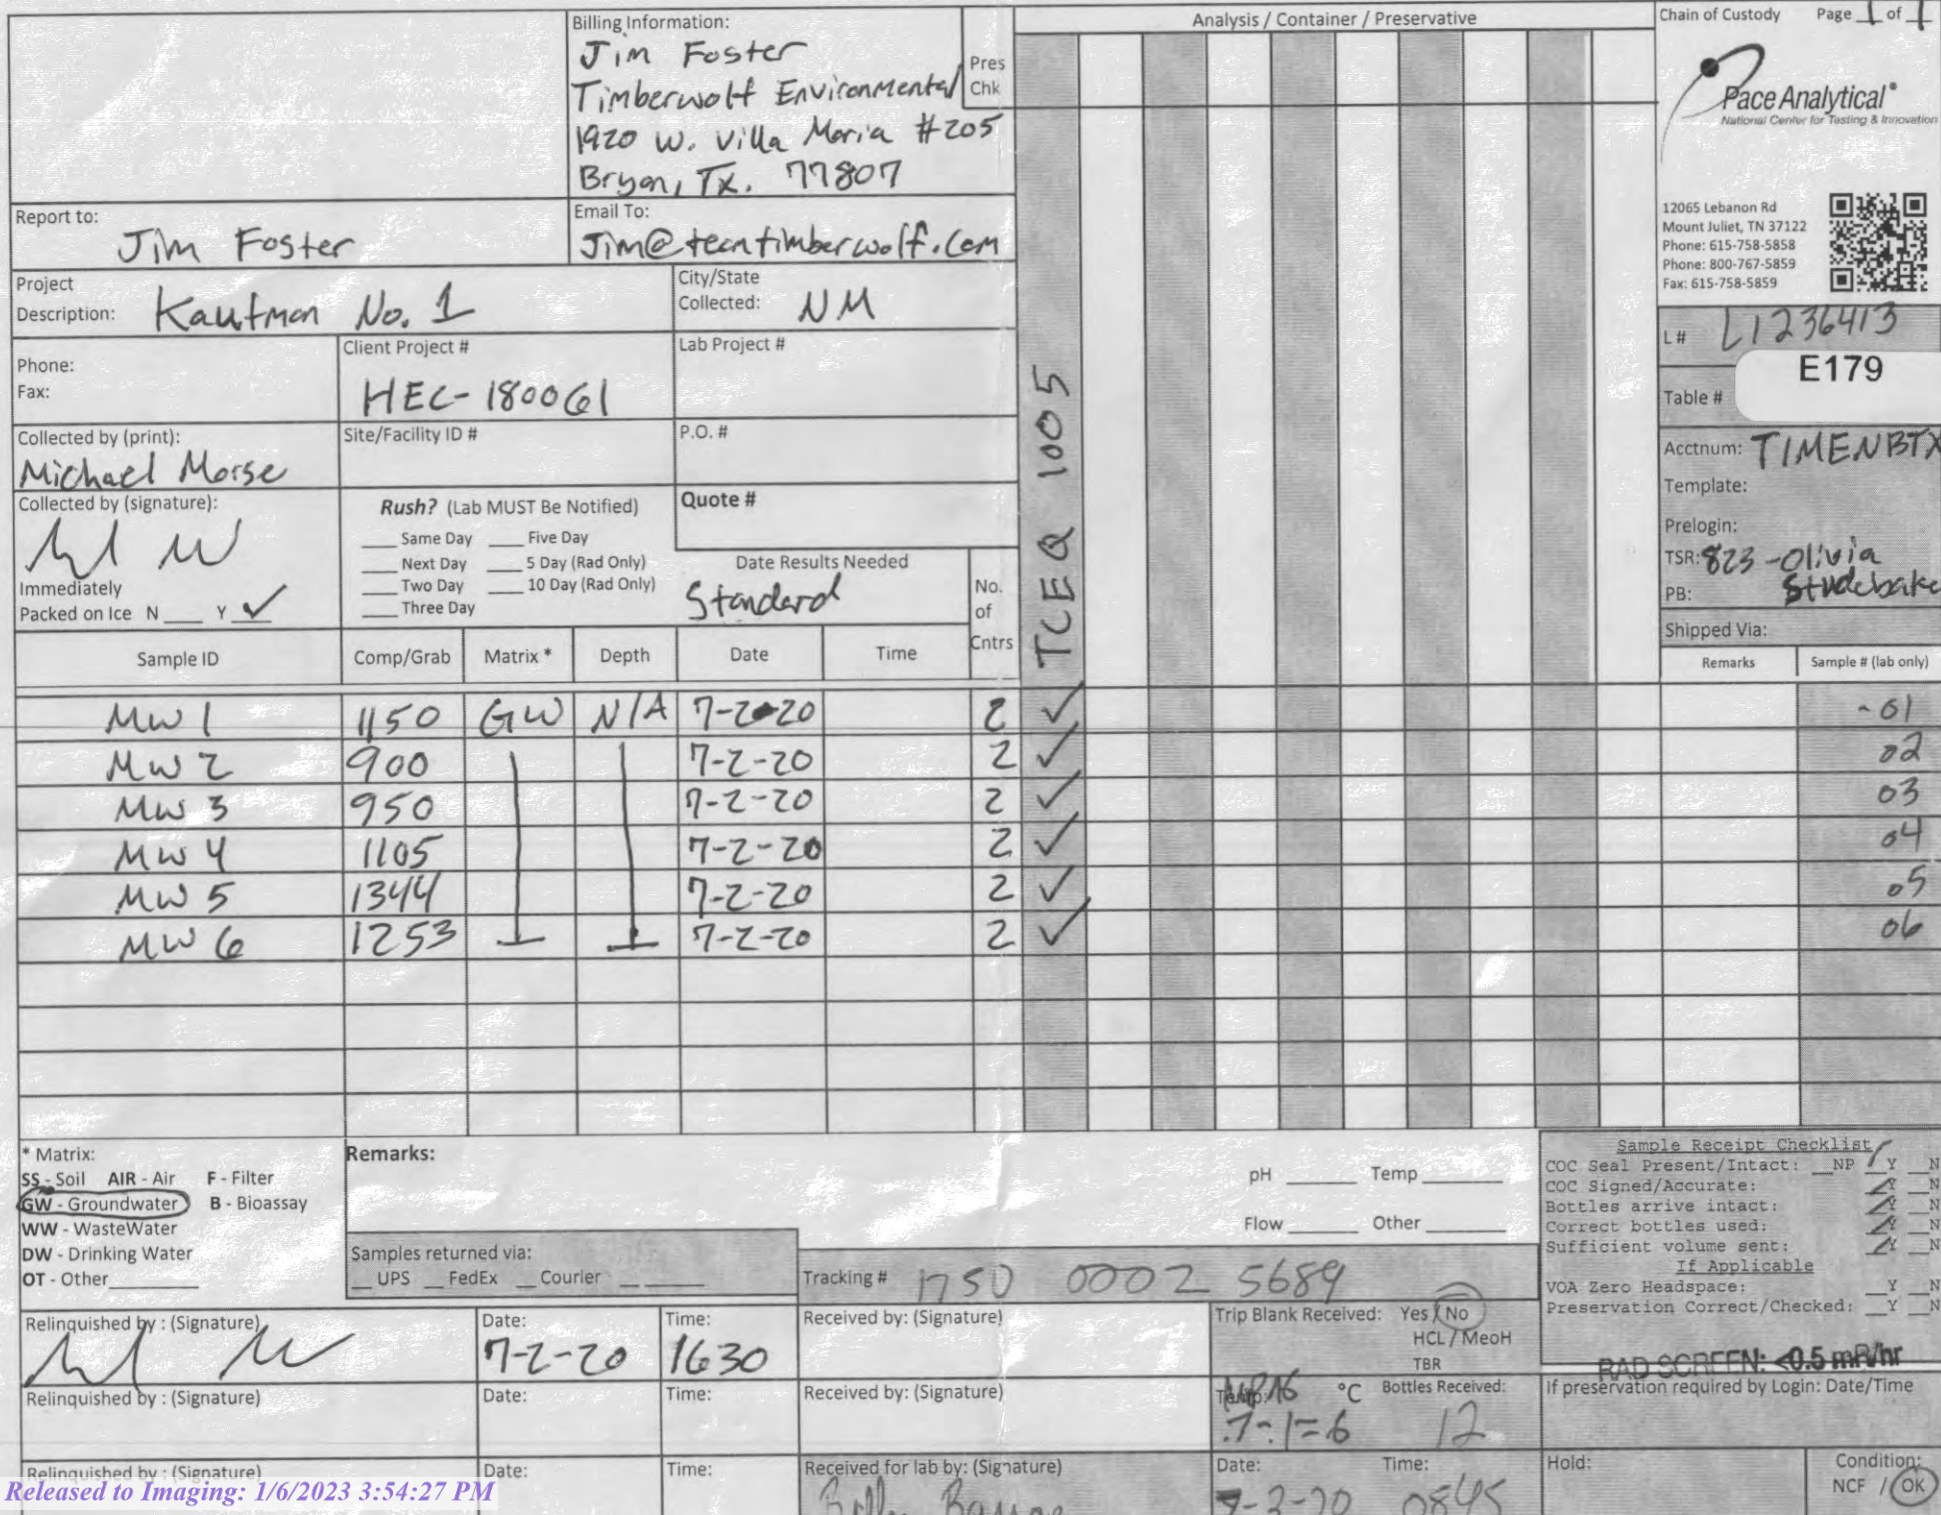 Billing Information:
Jim Foster
Timberwolf Environmental
1920 W. Villa Maria #205
Bryan, Tx. 77807
Pres
Chk
Analysis / Container / Preservative
Chain of Custody Page 1 of 1
Pace Analytical®
National Center for Testing & Innovation
12065 Lebanon Rd
Mount Juliet, TN 37122
Phone: 615-758-5858
Phone: 800-767-5859
Fax: 615-758-5859
Report to:
Jim Foster
Email To:
Jim@teamtimberwolf.com
Project
Description: Kaufman No. 1
City/State
Collected: NM
L # L1236413
E179
Table #
Phone:
Fax:
Client Project #
HEC-180061
Lab Project #
TCEQ 1005
Collected by (print):
Michael Morse
Site/Facility ID #
P.O. #
Acctnum: TIMENBTX
Template:
Prelogin:
TSR: 823 - Olivia
Studebake
PB:
Shipped Via:
Collected by (signature):
Immediately
Packed on Ice N ___ Y ✓
Rush? (Lab MUST Be Notified)
___ Same Day ___ Five Day
___ Next Day ___ 5 Day (Rad Only)
___ Two Day ___ 10 Day (Rad Only)
___ Three Day
Quote #
Date Results Needed
Standard
No.
of
Cntrs
Sample ID Comp/Grab Matrix * Depth Date Time Remarks Sample # (lab only)
MW 1 1150 GW N/A 7-2-20 2 ✓ -01
MW 2 900 7-2-20 2 ✓ 02
MW 3 950 7-2-20 2 ✓ 03
MW 4 1105 7-2-20 2 ✓ 04
MW 5 1344 7-2-20 2 ✓ 05
MW 6 1253 7-2-20 2 ✓ 06
* Matrix:
SS - Soil AIR - Air F - Filter
GW - Groundwater B - Bioassay
WW - WasteWater
DW - Drinking Water
OT - Other
Remarks:
pH ___ Temp ___
Flow ___ Other ___
Samples returned via:
__ UPS __ FedEx __ Courier __
Tracking # 1750 0002 5689
Sample Receipt Checklist
COC Seal Present/Intact: __NP ✓Y __N
COC Signed/Accurate: ✓Y __N
Bottles arrive intact: ✓Y __N
Correct bottles used: ✓Y __N
Sufficient volume sent: ✓Y __N
If Applicable
VOA Zero Headspace: __Y __N
Preservation Correct/Checked: __Y __N
RAD SCREEN: <0.5 mR/hr
Relinquished by : (Signature)
Date:
7-2-20
Time:
1630
Received by: (Signature)
Trip Blank Received: Yes / No
HCL / MeoH
TBR
Relinquished by : (Signature)
Date:
Time:
Received by: (Signature)
Temp: °C
.7-.1=.6
Bottles Received:
12
If preservation required by Login: Date/Time
Relinquished by : (Signature)
Date:
Time:
Received for lab by: (Signature)
Date:
7-3-20
Time:
0845
Hold:
Condition:
NCF / OK
Released to Imaging: 1/6/2023 3:54:27 PM